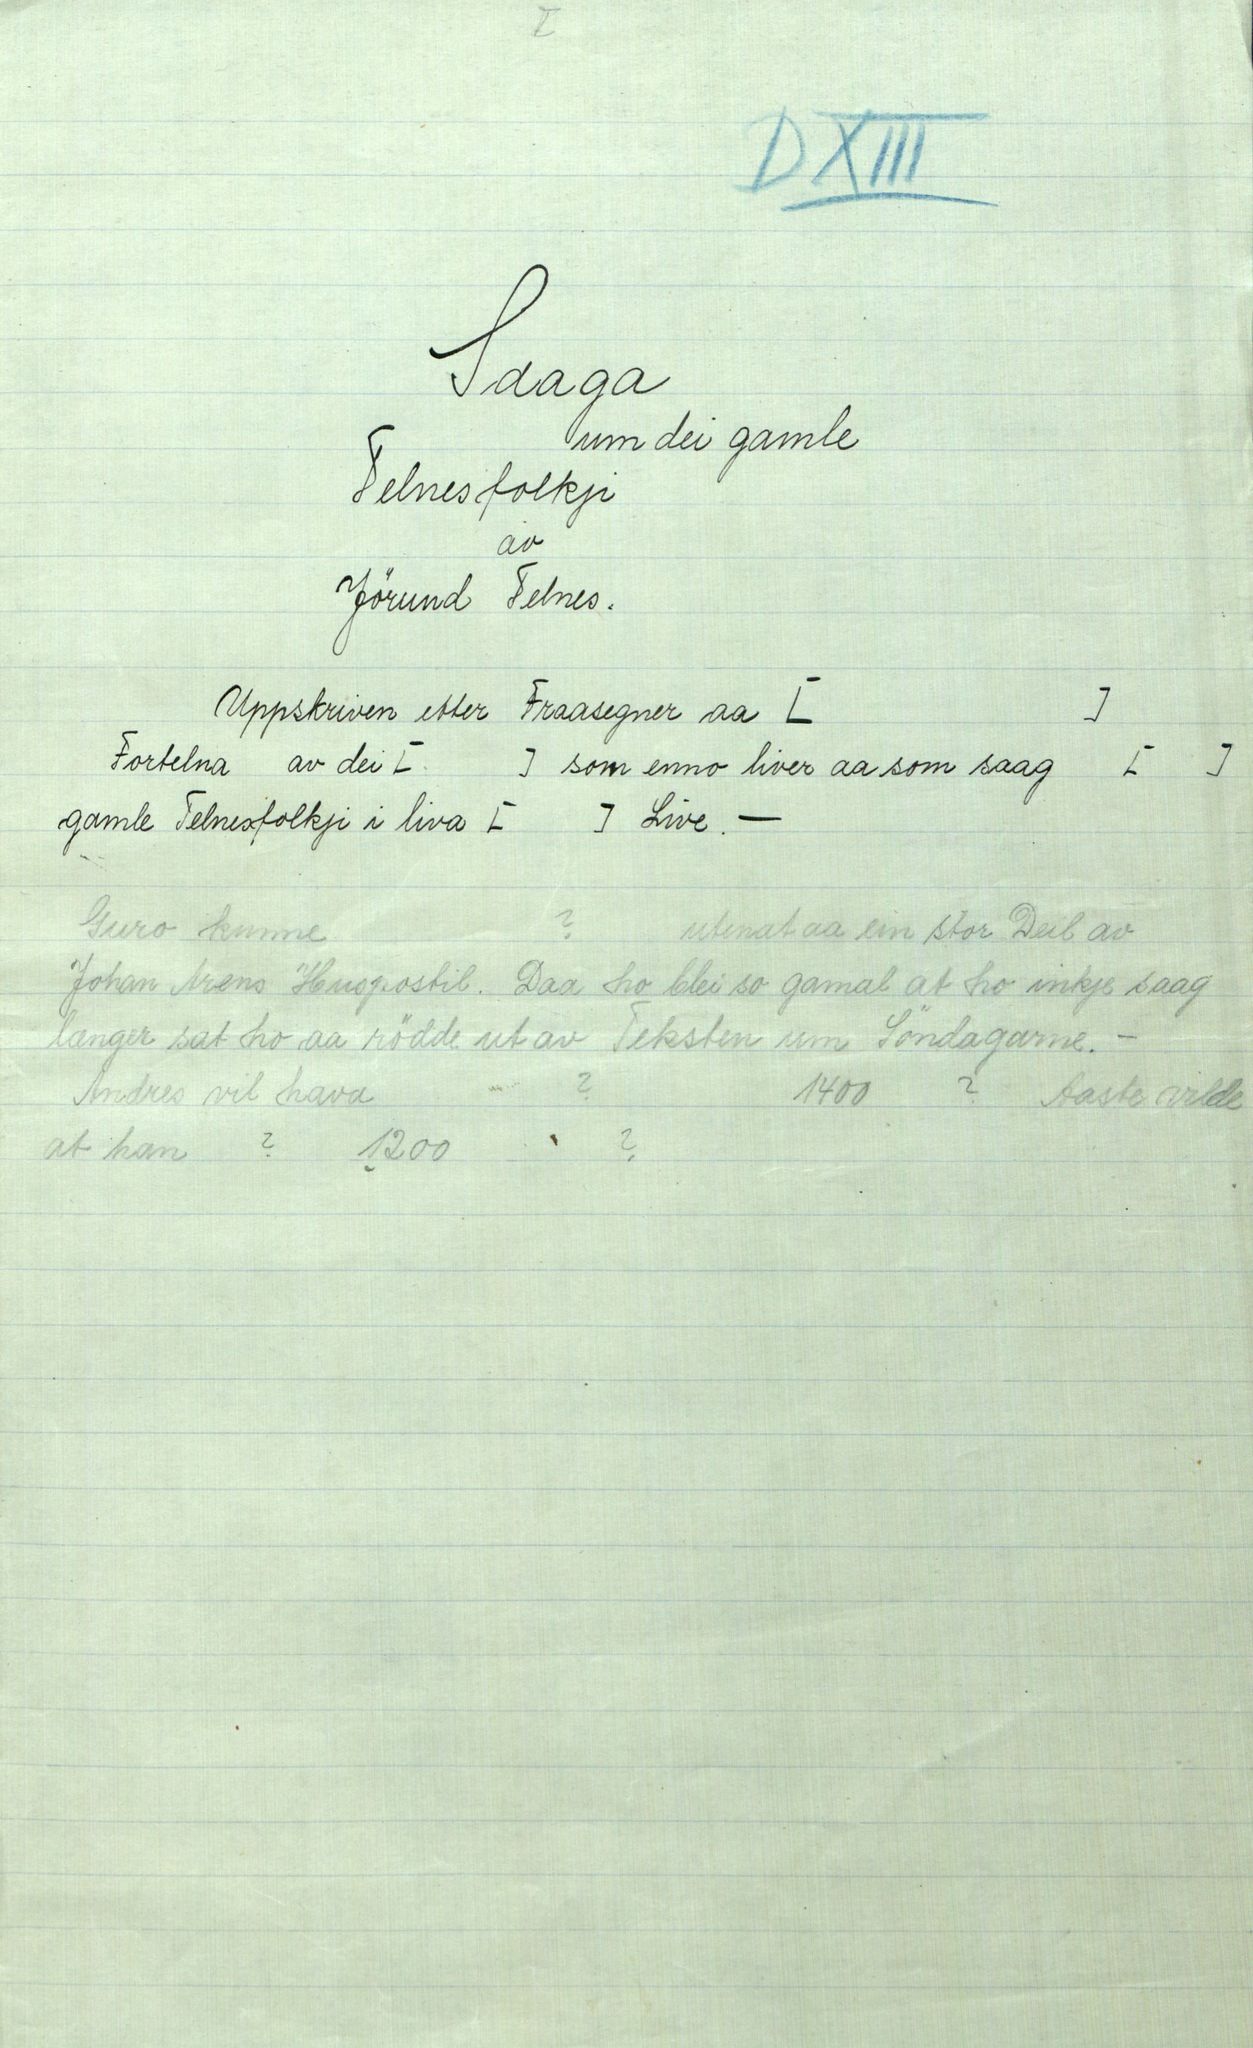 I
DXIII
Sdaga
um dei gamle
Telnesfolkji
av
Jörund Telnes.
Uppskriven etter Fraasegner aa [ ]
Fortelna av dei [ ] som enno liver aa som saag [ ]
gamle Telnesfolkji i liva [ ] Live. —
Guro kunne ? utenat aa ein stor Deil av
Johan Arens Huspostil. Daa ho blei so gamal at ho inkje saag
længer sat ho aa rödde ut av Teksten um Söndagarne. —
Andres vil hava ? 1400 ? Aaste vilde
at han ? 1200 ?